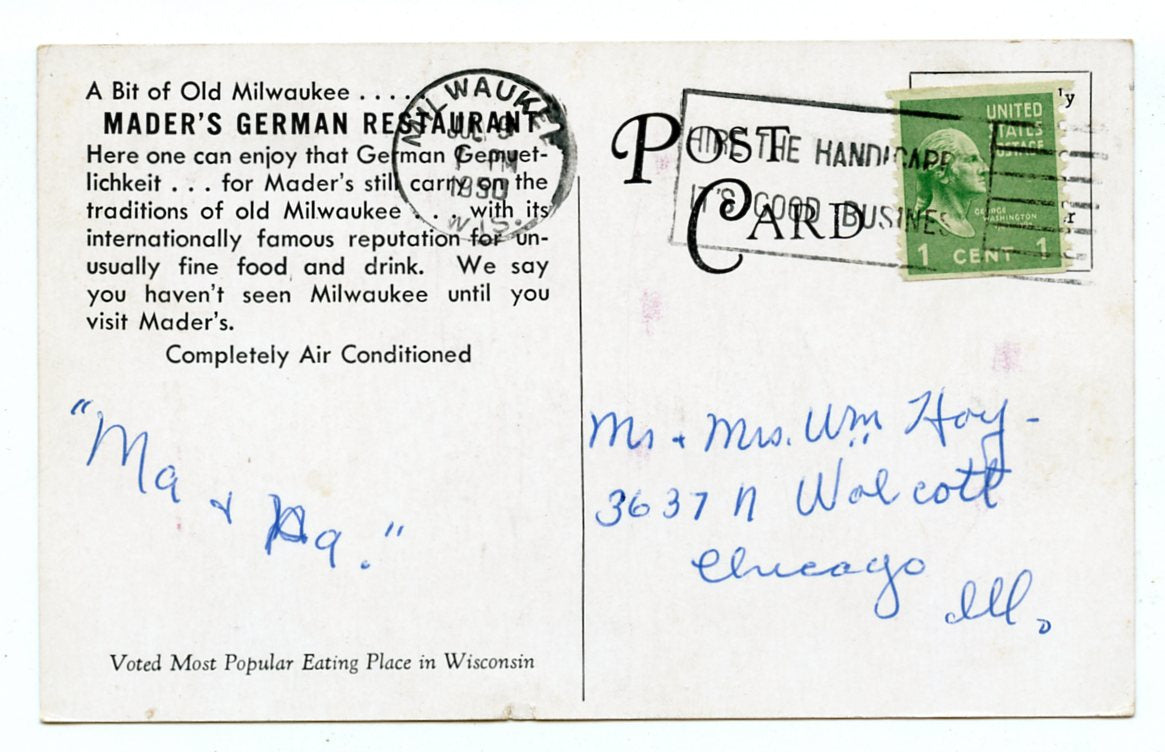 A Bit of Old Milwaukee . . . . .
MADER'S GERMAN RESTAURANT
Here one can enjoy that German Gemuet-
lichkeit . . . for Mader's still carry on the
traditions of old Milwaukee . . . with its
internationally famous reputation for un-
usually fine food and drink. We say
you haven't seen Milwaukee until you
visit Mader's.
Completely Air Conditioned
"Ma + Pa."
Voted Most Popular Eating Place in Wisconsin
MILWAUKEE
JUL
PM
1950
WIS.
POST
CARD
HIRE THE HANDICAPP
IT'S GOOD BUSINES
UNITED
STATES
POSTAGE
GEORGE
WASHINGTON
1 CENT 1
y
r
Mr + Mrs. Wm Hoy -
3637 N Wolcott
Chicago
Ill.